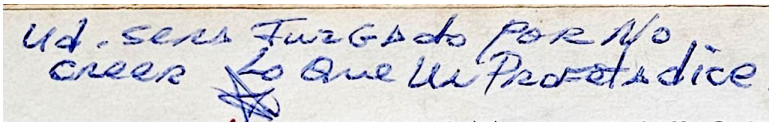 Ud. sera Juzgado por No
creer Lo que un Profeta dice